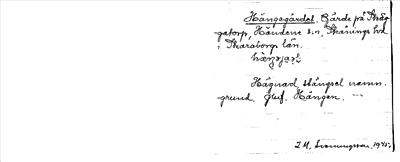 Hängsgärdet. Gärde på Skåg-
getorp, Händene s:n, Skånings hd
i Skaraborgs län.
Hägnad, stängsel namn-
grund. Jmf. Hängen.
I.M. Svenningsson. 1945.